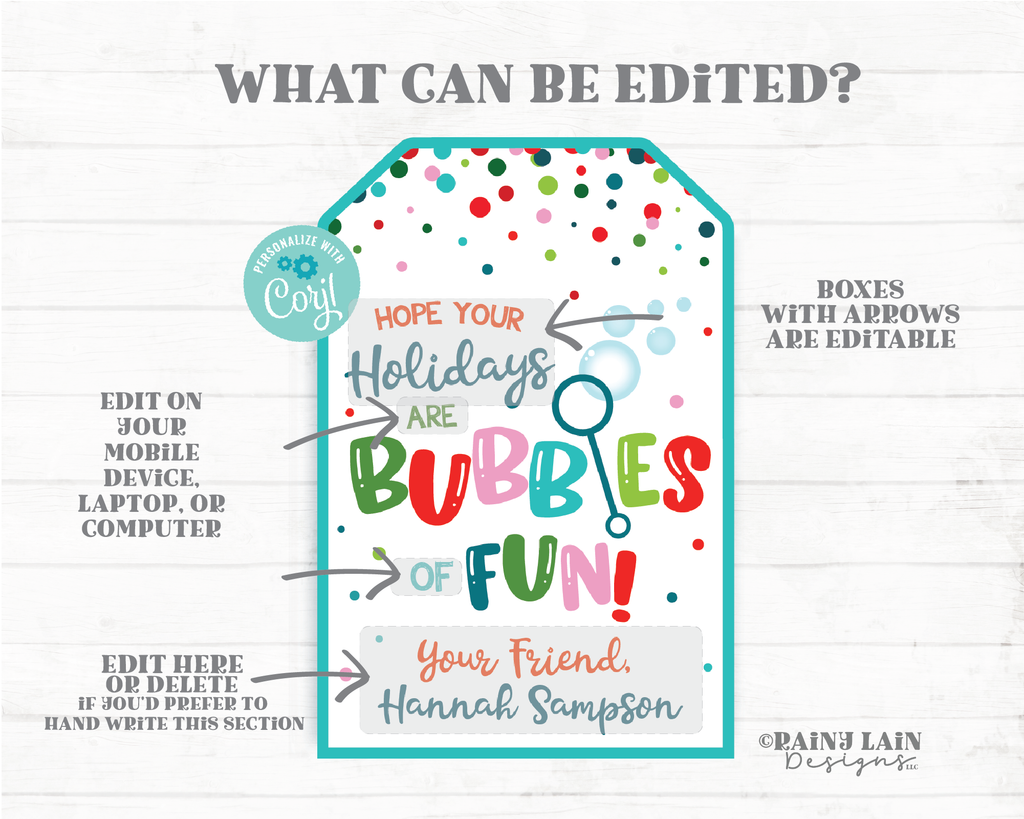 WHAT CAN BE EDiTED?
PERSONALIZE WITH
Corjl
HOPE YOUR
Holidays
ARE
BUBBLES
OF FUN!
Your Friend,
Hannah Sampson
BOXES
WiTH ARROWS
ARE EDiTABLE
EDIT ON
YOUR
MOBiLE
DEViCE,
LAPTOP, OR
COMPUTER
EDIT HERE
OR DELETE
iF YOU'D PREFER TO
HAND WRiTE THiS SECTiON
©RAiNY LAiN
Designs LLC